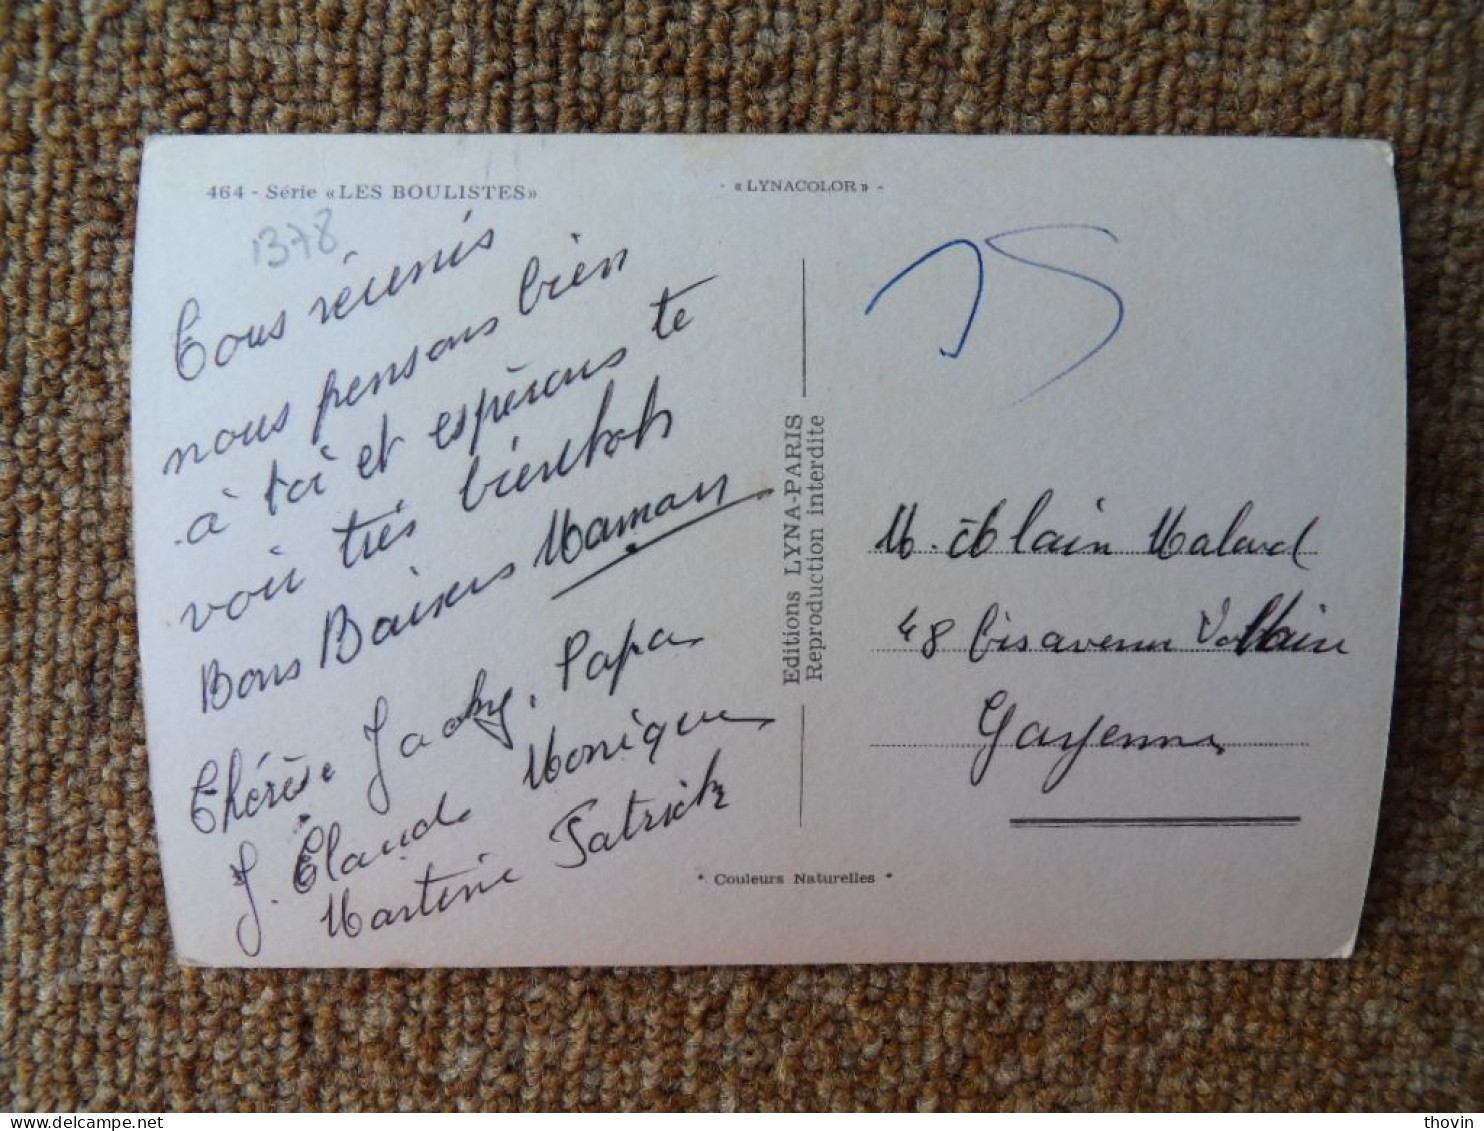 464 - Série «LES BOULISTES»
- «LYNACOLOR» -
1378
Tous réunis
nous pensons bien
à toi et espérons te
voir très bientôt
Bons Baisers Maman
Thérèse Jacky. Papa
J. Claude Monique
Martine Patrick
Editions LYNA-PARIS
Reproduction interdite
M. Alain Malard
48 bis avenue Voltaire
Gayenne
* Couleurs Naturelles *
thovin